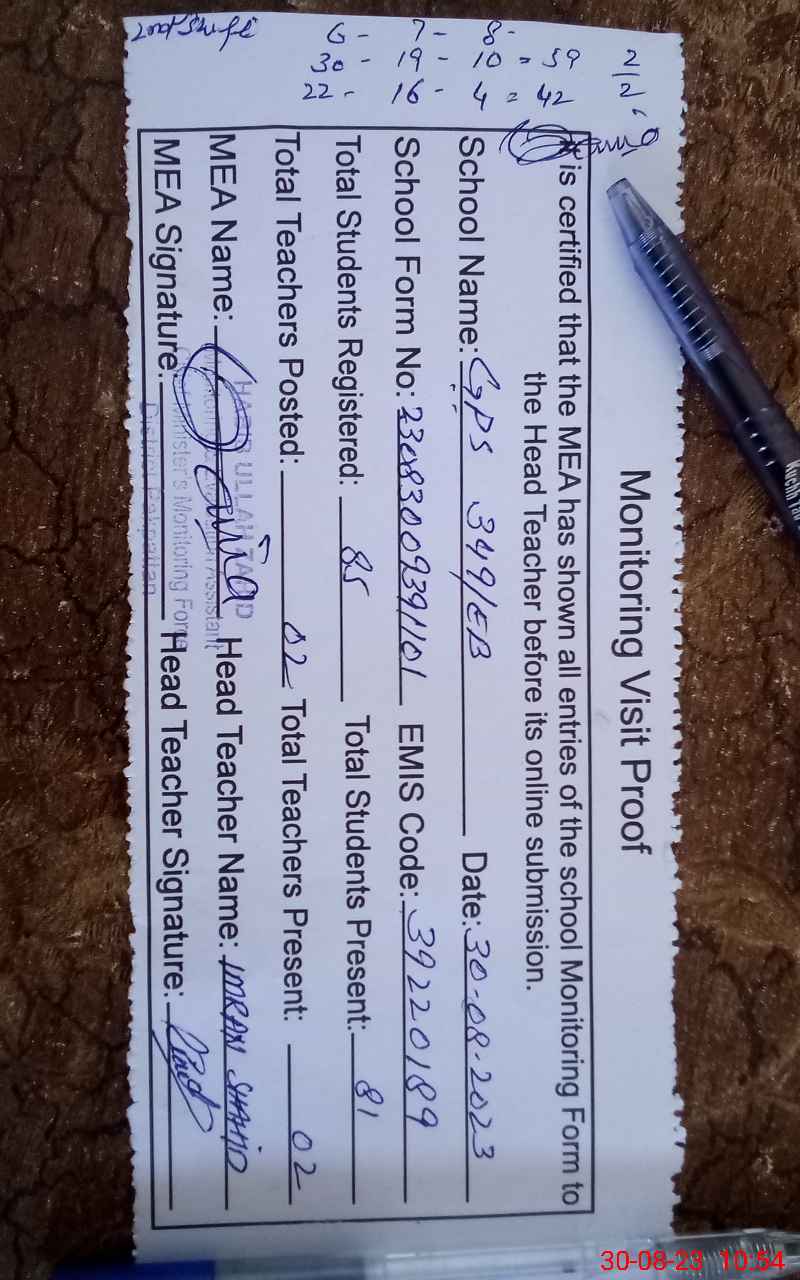 2nd Shift
6 - 7 - 8 -
30 - 19 - 10 = 59
22 - 16 - 4 = 42
2/2
Monitoring Visit Proof
is certified that the MEA has shown all entries of the school Monitoring Form to
the Head Teacher before its online submission.
School Name: GPS 349/EB Date: 30-08-2023
School Form No: 23083009391101 EMIS Code: 39220189
Total Students Registered: 85 Total Students Present: 81
Total Teachers Posted: 02 Total Teachers Present: 02
MEA Name: Head Teacher Name: IMRAN SHAHID
MEA Signature: Head Teacher Signature:
HABIB ULLAH
Monitoring Force
District Pakpattan
30-08-23 10:54